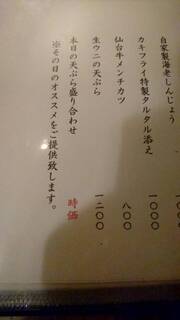 自家製海老しんじょう 一〇〇〇
カキフライ特製タルタル添え 一〇〇〇
仙台牛メンチカツ 八〇〇
生ウニの天ぷら 一二〇〇
本日の天ぷら盛り合わせ 時価
※その日のオススメをご提供致します。